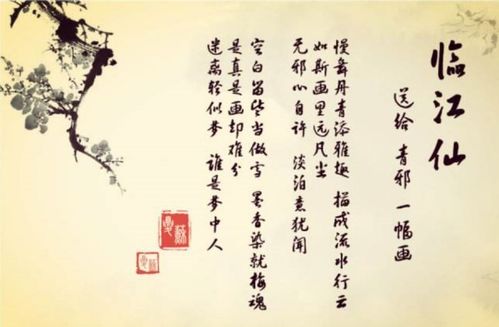 临江仙
送给 青邪 一幅画
慢舞丹青添雅趣 描成流水行云
如斯画里远凡尘
无邪心自许 淡泊意犹闻
空白留些当做雪 墨香染就梅魂
是真是画却难分
迷离轻似梦 谁是梦中人